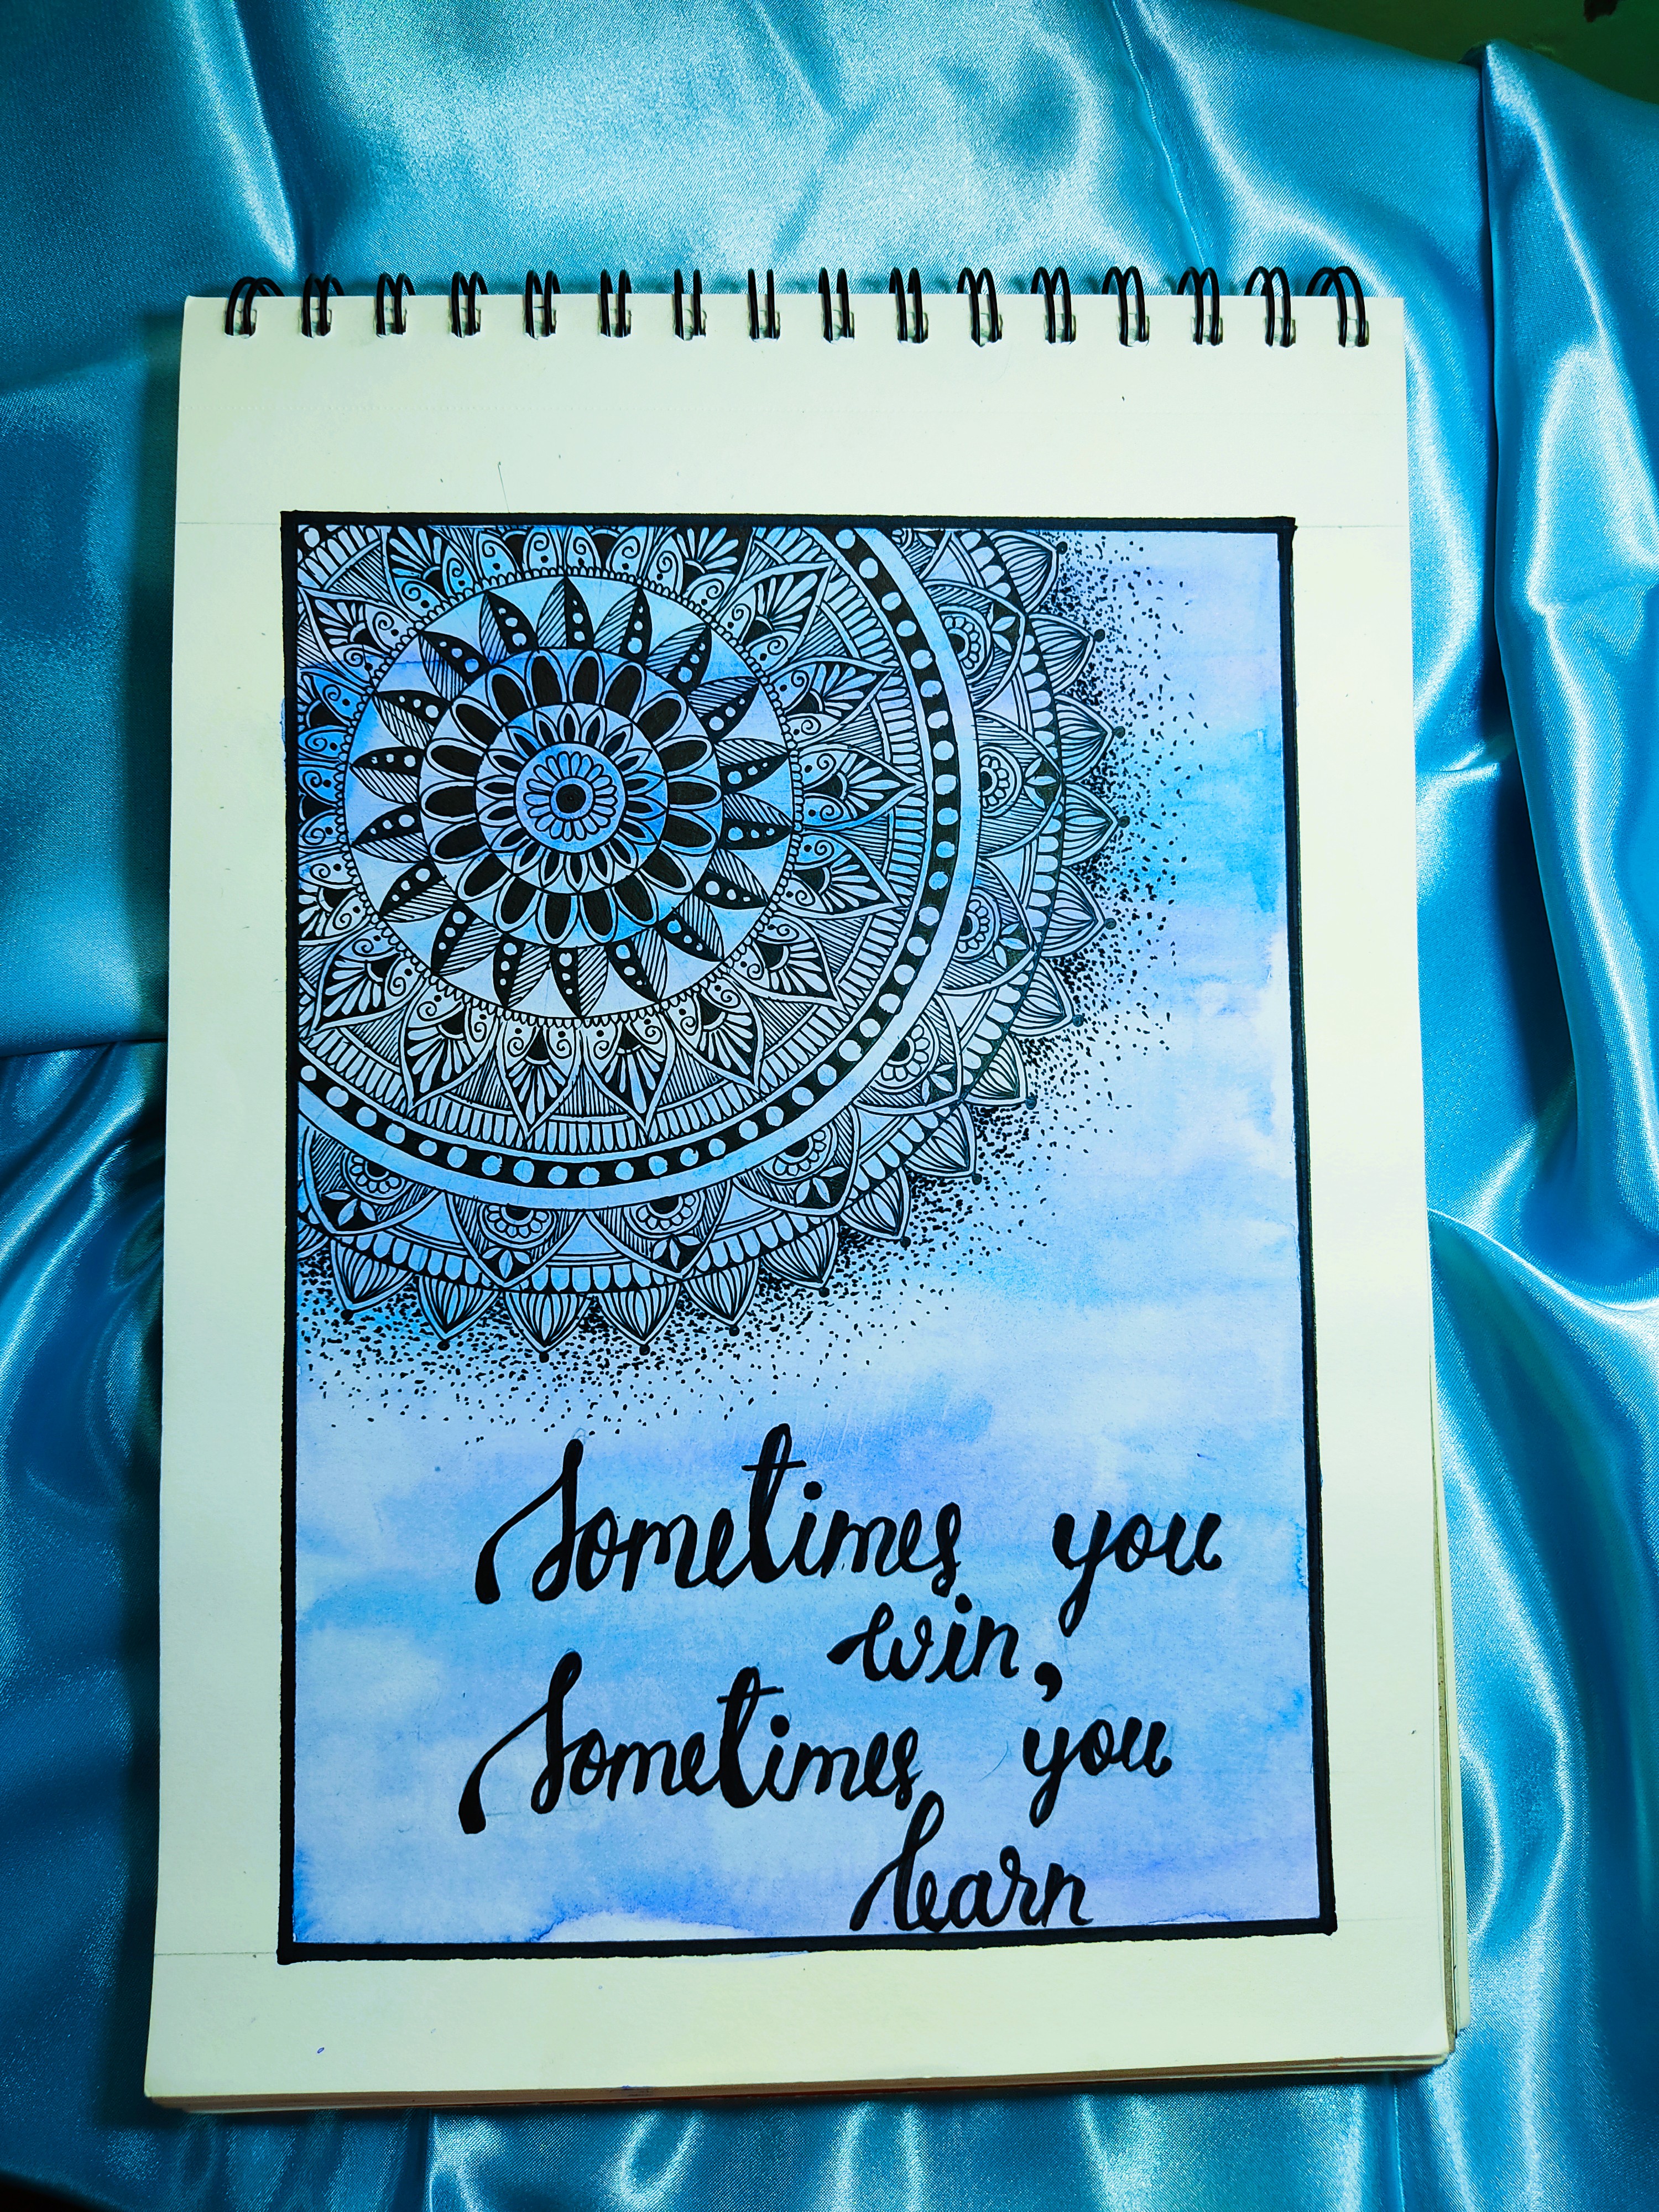 Sometimes you
win,
Sometimes you
learn